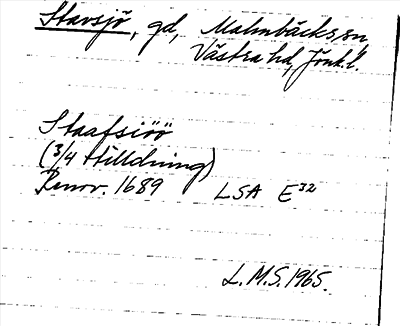 Stavsjö, gd, Malmbäcks sn
Västra hd, Jönk. l.
Staafsiöö
(3/4 tilldning)
Renov. 1689 LSA E32
L.M.S. 1965.